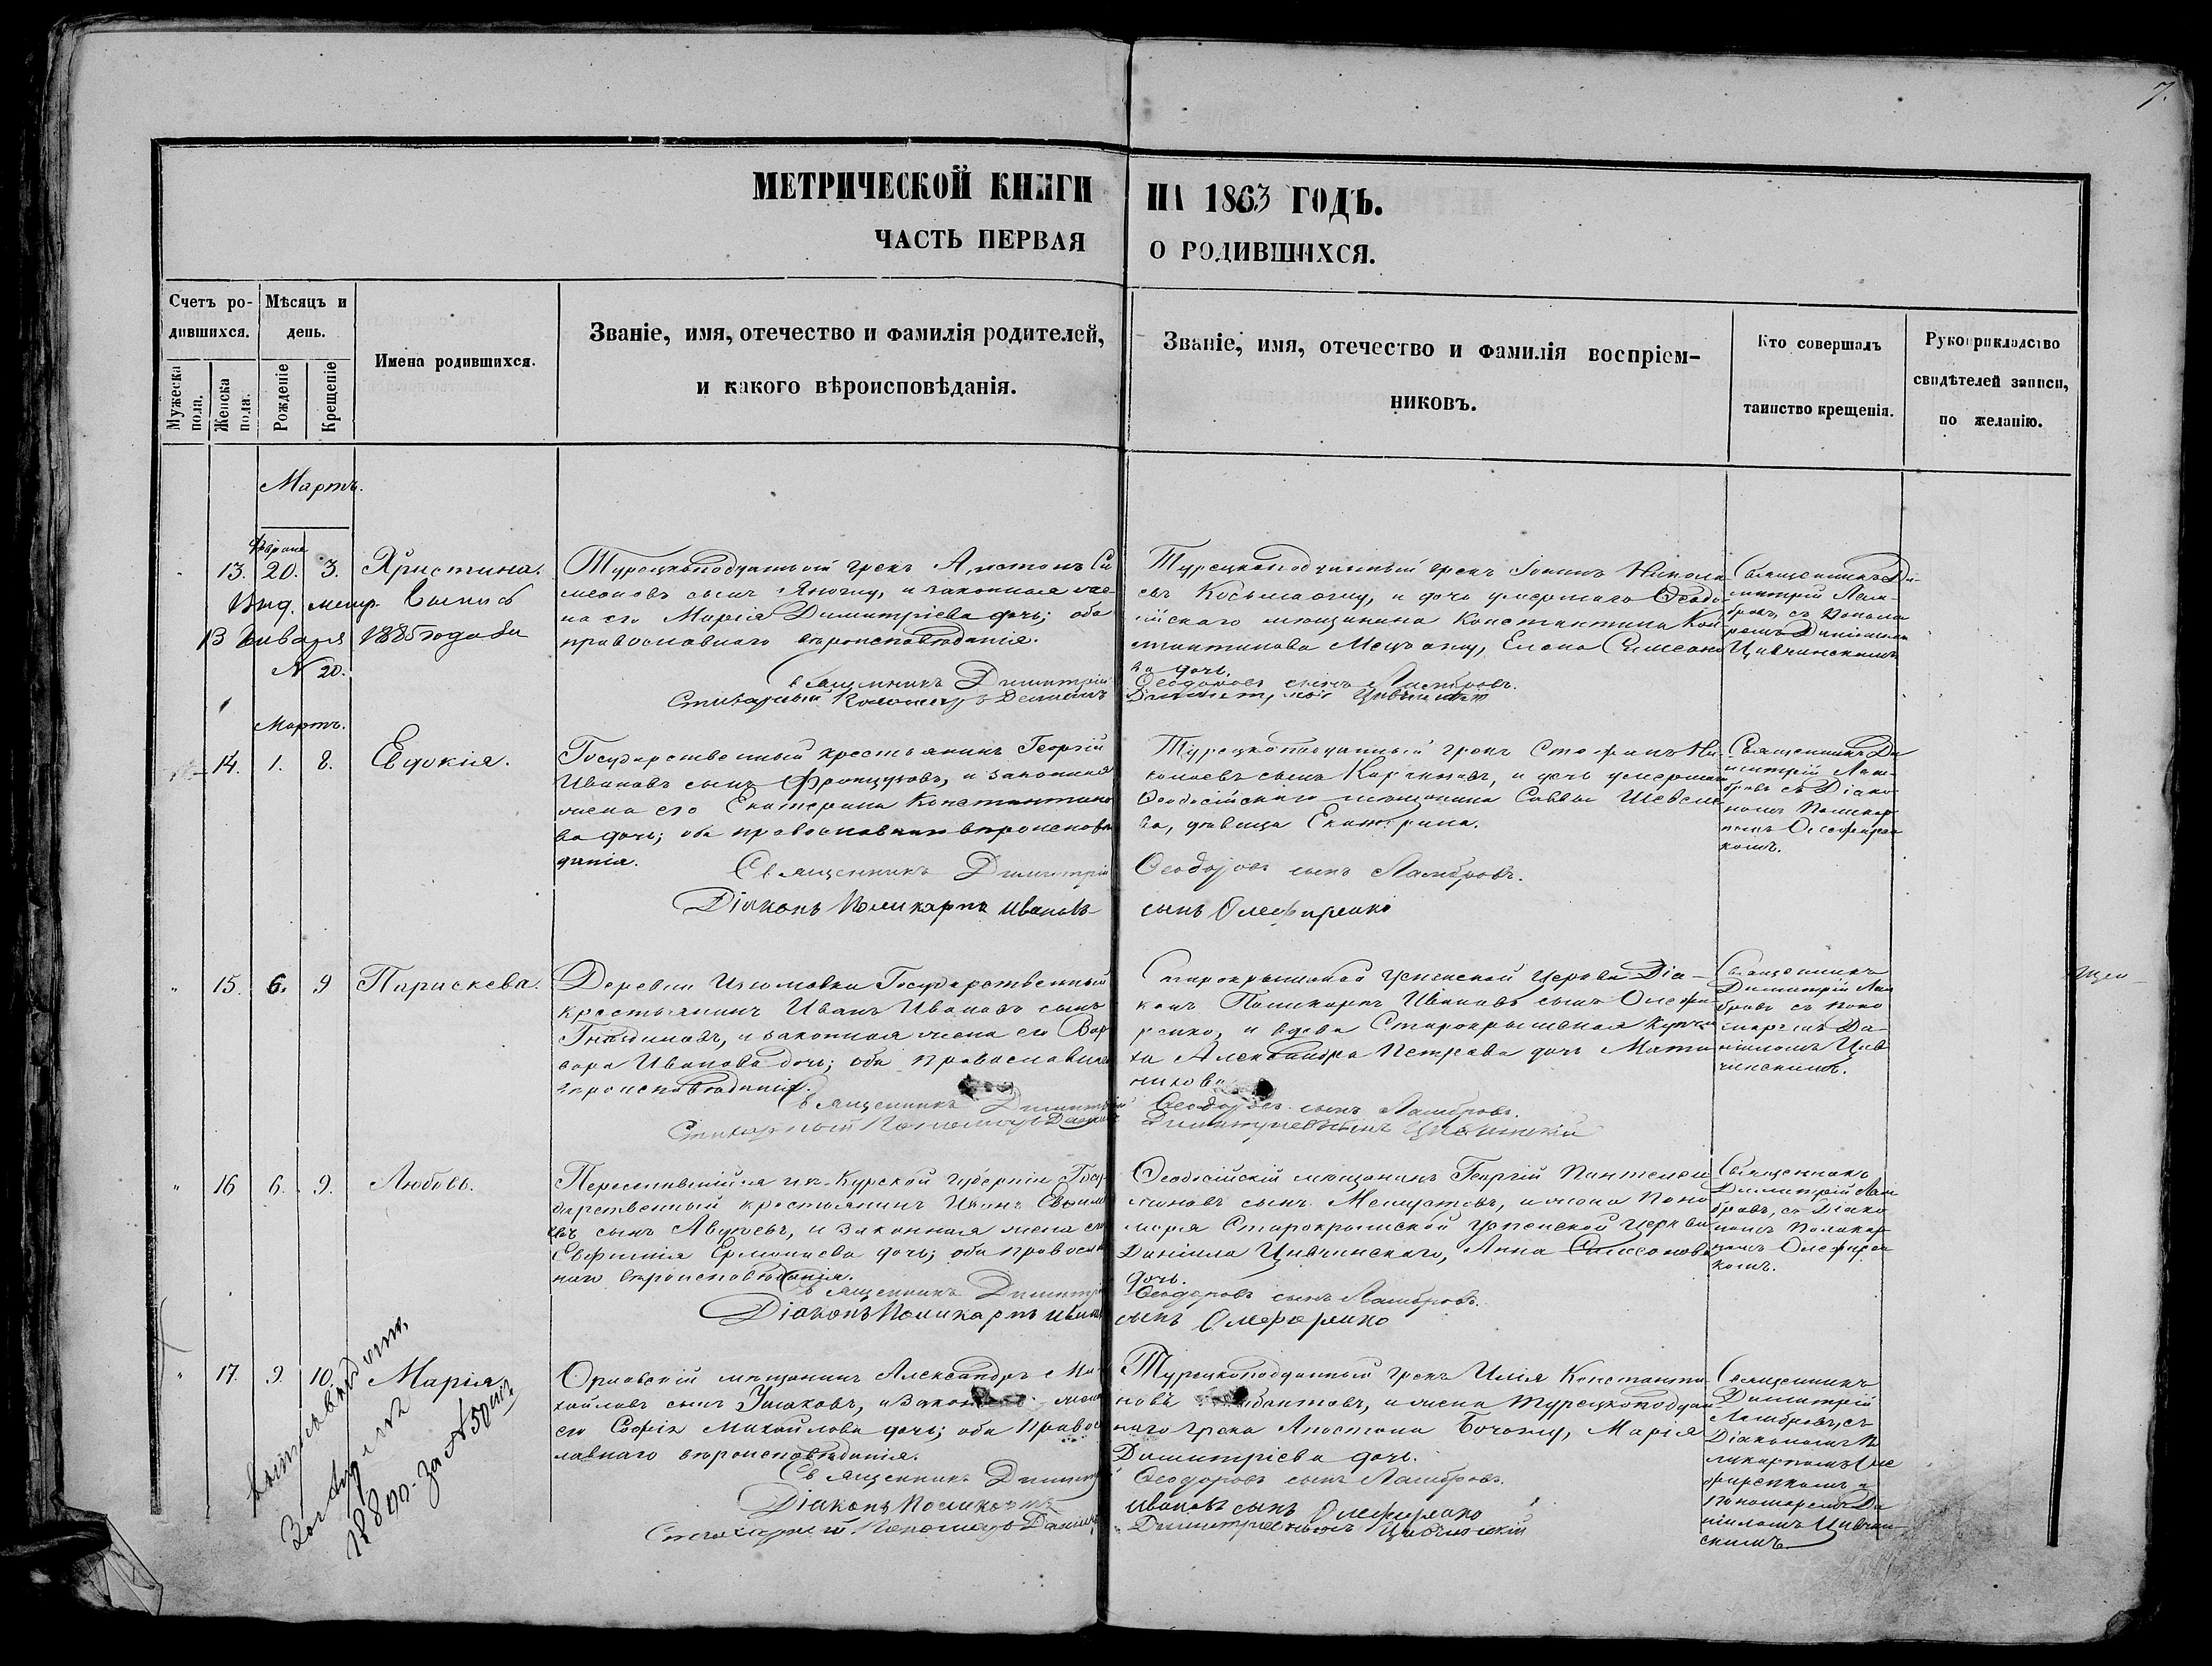 7.
МЕТРИЧЕСКОЙ КНИГИ НА 1863 ГОДЪ.
ЧАСТЬ ПЕРВАЯ О РОДИВШИХСЯ.
Счетъ ро-
дившихся.
Мужеска
пола.
Женска
пола.
Мѣсяцъ и
день.
Рожденіе
Крещеніе
Имена родившихся.
Званіе, имя, отечество и фамилія родителей,
и какого вѣроисповѣданія.
Званіе, имя, отечество и фамилія воспріем-
никовъ.
Кто совершалъ
таинство крещенія.
Рукоприкладство
свидѣтелей записи,
по желанію.
Мартъ.
13. 20. 3. Христина.
Выд. метр. выпись
13 Января 1885 года за
N 20.
Турецкоподданный грекъ Апостолъ Си
меоновъ сынъ и законная же
на его Марія Димитріева дочь; оба
православнаго вѣроисповѣданія.
Священникъ Димитрій
Стихарный Пономарь Даніилъ
Турецкоподданный грекъ Іоаннъ Никола
евъ и дочь умершаго Ѳеодо-
сійскаго мѣщанина Константина Кон-
стантинова Елена Симеоно
ва дочь.
Ѳеодоровъ сынъ Ламбровъ.
Священникъ Ди-
митрій Лам-
бровъ, съ Понома
ремъ Даніиломъ
Цивчинскимъ
Мартъ.
14. 1. 8. Евдокія.
Государственный крестьянинъ Георгій
Ивановъ сынъ Французовъ, и законная
жена его Екатерина Константино
ва дочь; оба православнаго вѣроисповѣ
данія.
Священникъ Димитрій
Діаконъ Поликарпъ Ивановъ
Турецкоподданный грекъ Стефанъ Ни-
колаевъ сынъ и дочь умершаго
Ѳеодосійскаго мѣщанина Саввы
ва, дѣвица Екатерина.
Ѳеодоровъ сынъ Ламбровъ.
сынъ Олефиренко
Священникъ Ди
митрій Лам-
бровъ съ Діако-
номъ Поликар
помъ Олефирен
комъ.
15. 6. 9 Параскева.
Деревни Изюмовки Государственный
крестьянинъ Иванъ Ивановъ сынъ
и законная жена его Вар
вара Иванова дочь; оба православнаго
вѣроисповѣданія.
Священникъ Димитрій
Стихарный Пономарь Даніилъ
Старокрымской Успенской Церкви Діа-
конъ Поликарпъ Ивановъ сынъ Олефи-
ренко, и вдова Старокрымская Купчи
ха Александра Петрова дочь Мати
никова.
Ѳеодоровъ сынъ Ламбровъ.
Димитріевъ сынъ Цивчинскій
Священникъ
Димитрій Лам
бровъ съ Поно
маремъ Да-
ніиломъ Цив
чинскимъ.
16 6. 9. Любовь.
Переселившійся изъ Курской губерніи Госу-
дарственный крестьянинъ Иванъ Евфимі
евъ сынъ и законная жена его
Евфимія Ермолаева дочь; оба правосла
внаго вѣроисповѣданія.
Священникъ Димитрій
Діаконъ Поликарпъ Ивановъ
Ѳеодосійскій мѣщанинъ Георгій Пантелеи
моновъ сынъ и жена Поно
маря Старокрымской Успенской Церкви
Даніила Цивчинскаго, Анна Симеонова
дочь.
Ѳеодоровъ сынъ Ламбровъ.
сынъ Олефиренко
Священникъ
Димитрій Лам
бровъ, съ Діако
номъ Поликар
помъ Олефирен
комъ.
17. 9. 10. Марія
Орловскій мѣщанинъ Александръ Ми-
хайловъ сынъ Ушаковъ, и законная жена
его Софія Михайлова дочь; оба Правос
лавнаго вѣроисповѣданія.
Священникъ Димитрій
Діаконъ Поликарпъ
Стихарный Пономарь Даніилъ
Турецкоподданный грекъ Илія Константи
новъ и жена Турецкоподдан
наго грека Апостола Марія
Димитріева дочь.
Ѳеодоровъ сынъ Ламбровъ.
Ивановъ сынъ Олефиренко
Димитріевъ сынъ Цивчинскій
Священникъ
Димитрій
Ламбровъ, съ
Діакономъ По
ликарпомъ Оле
фиренкомъ и
Пономаремъ Да
ніиломъ Цивчин-
скимъ